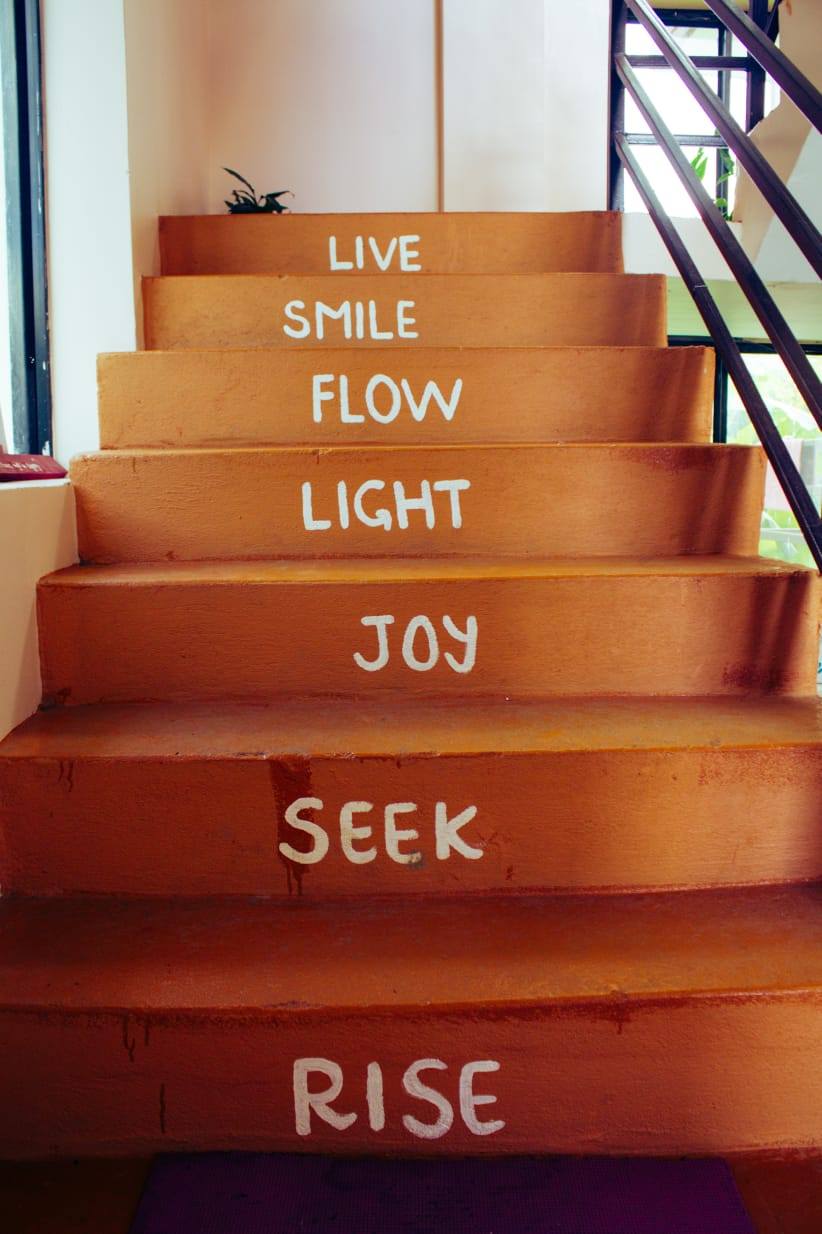 LIVE
SMILE
FLOW
LIGHT
JOY
SEEK
RISE